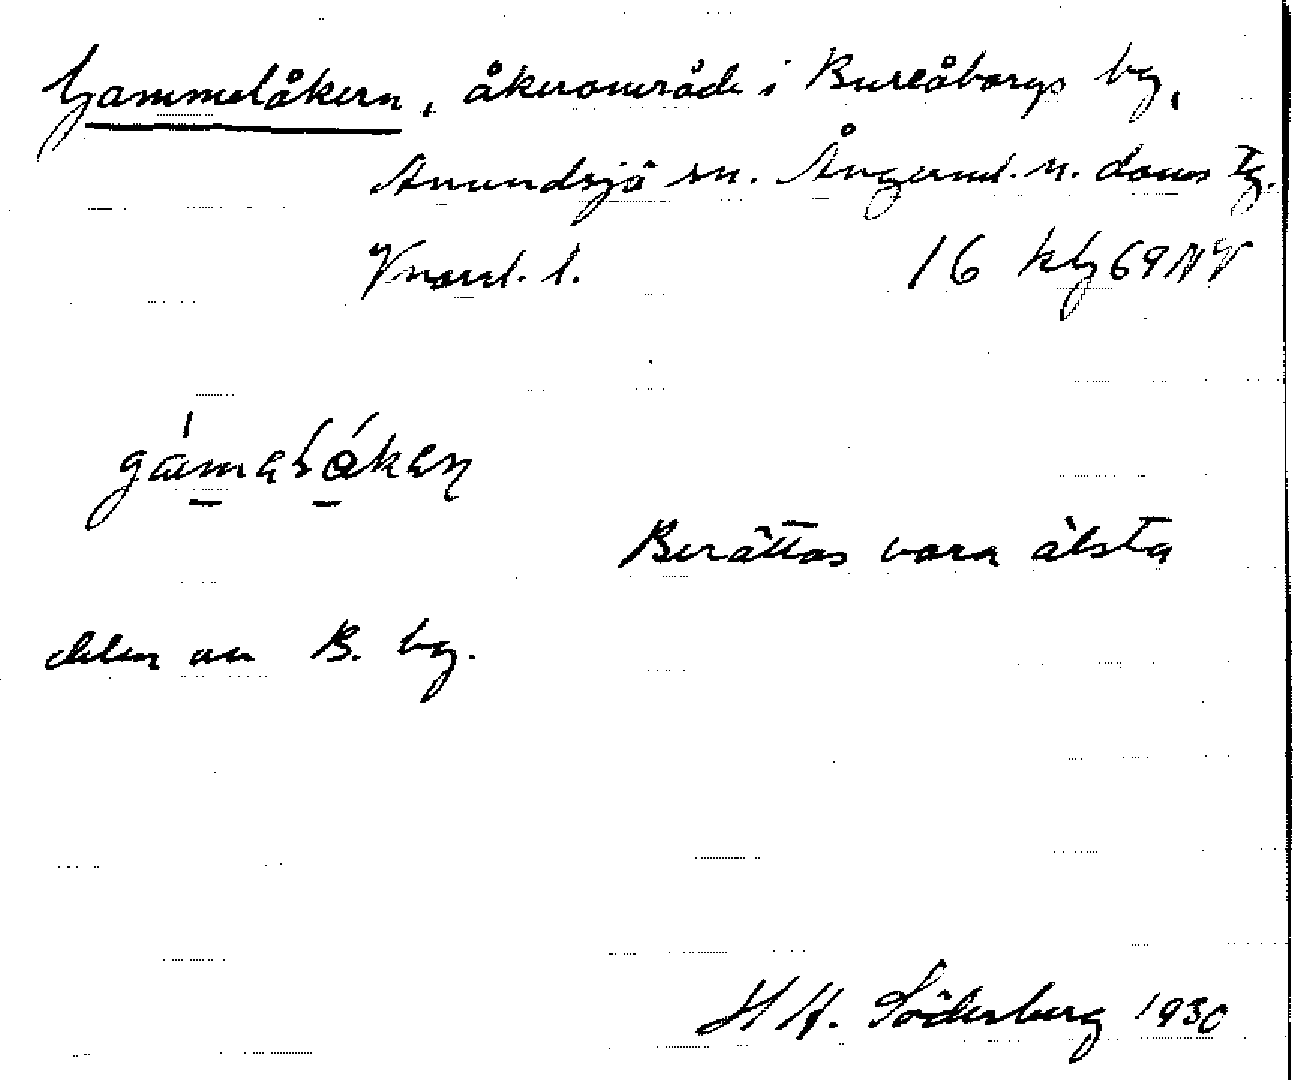 Gammelåkern, åkerområde i Bureåborgs bg,
Anundsjö sn. Ångerml. n. doms tg.
Vnorrl. l. 16 kbg 69 NV
gàmaɫåkan
Berättas vara älsta
delen av B. bg.
H H. Söderberg 1930